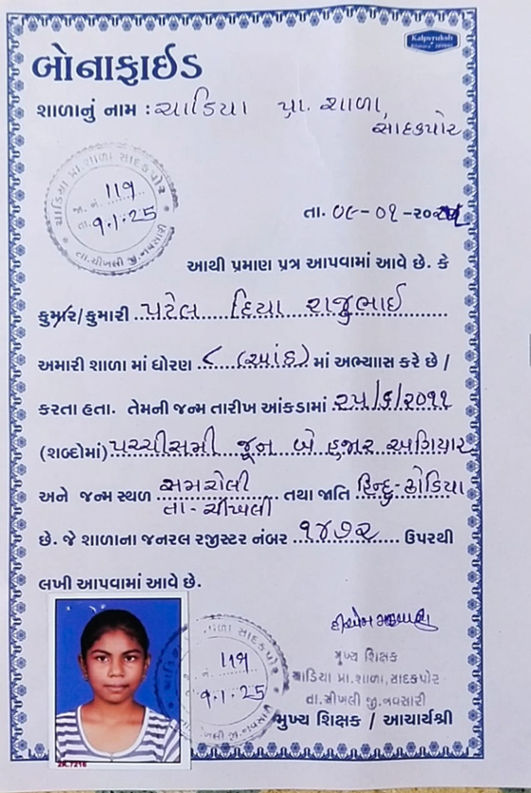 Kalpvruksh
બોનાફાઈડ
શાળાનું નામ : ચાડિયા પ્રા. શાળા,
સાદકપોર
ચાડિયા પ્રા શાળા સાદકપોર
જા. નં. 119
તા. 9.1.25
તા.ચીખલી જી.નવસારી
તા. ૦૯-૦૧-૨૦૨૫
આથી પ્રમાણ પત્ર આપવામાં આવે છે. કે
કુમાર/કુમારી પટેલ દિયા રાજુભાઈ
અમારી શાળા માં ધોરણ ૮ (આંઠ) માં અભ્યાસ કરે છે /
કરતા હતા. તેમની જન્મ તારીખ આંકડામાં ૨૫/૬/૨૦૧૧
(શબ્દોમાં) પચ્ચીસમી જૂન બે હજાર અગિયાર
અને જન્મ સ્થળ સમરોલી તથા જાતિ હિન્દુ-ઢોડિયા
તા-ચીખલી
છે. જે શાળાના જનરલ રજીસ્ટર નંબર ૧૪૭૨ ઉપરથી
લખી આપવામાં આવે છે.
શાળા સાદકપોર
119
9.1.25
ચીખલી જી.નવસારી
મુખ્ય શિક્ષક
ચાડિયા પ્રા.શાળા,સાદકપોર
તા.ચીખલી જી.નવસારી
મુખ્ય શિક્ષક / આચાર્યશ્રી
2K.7216